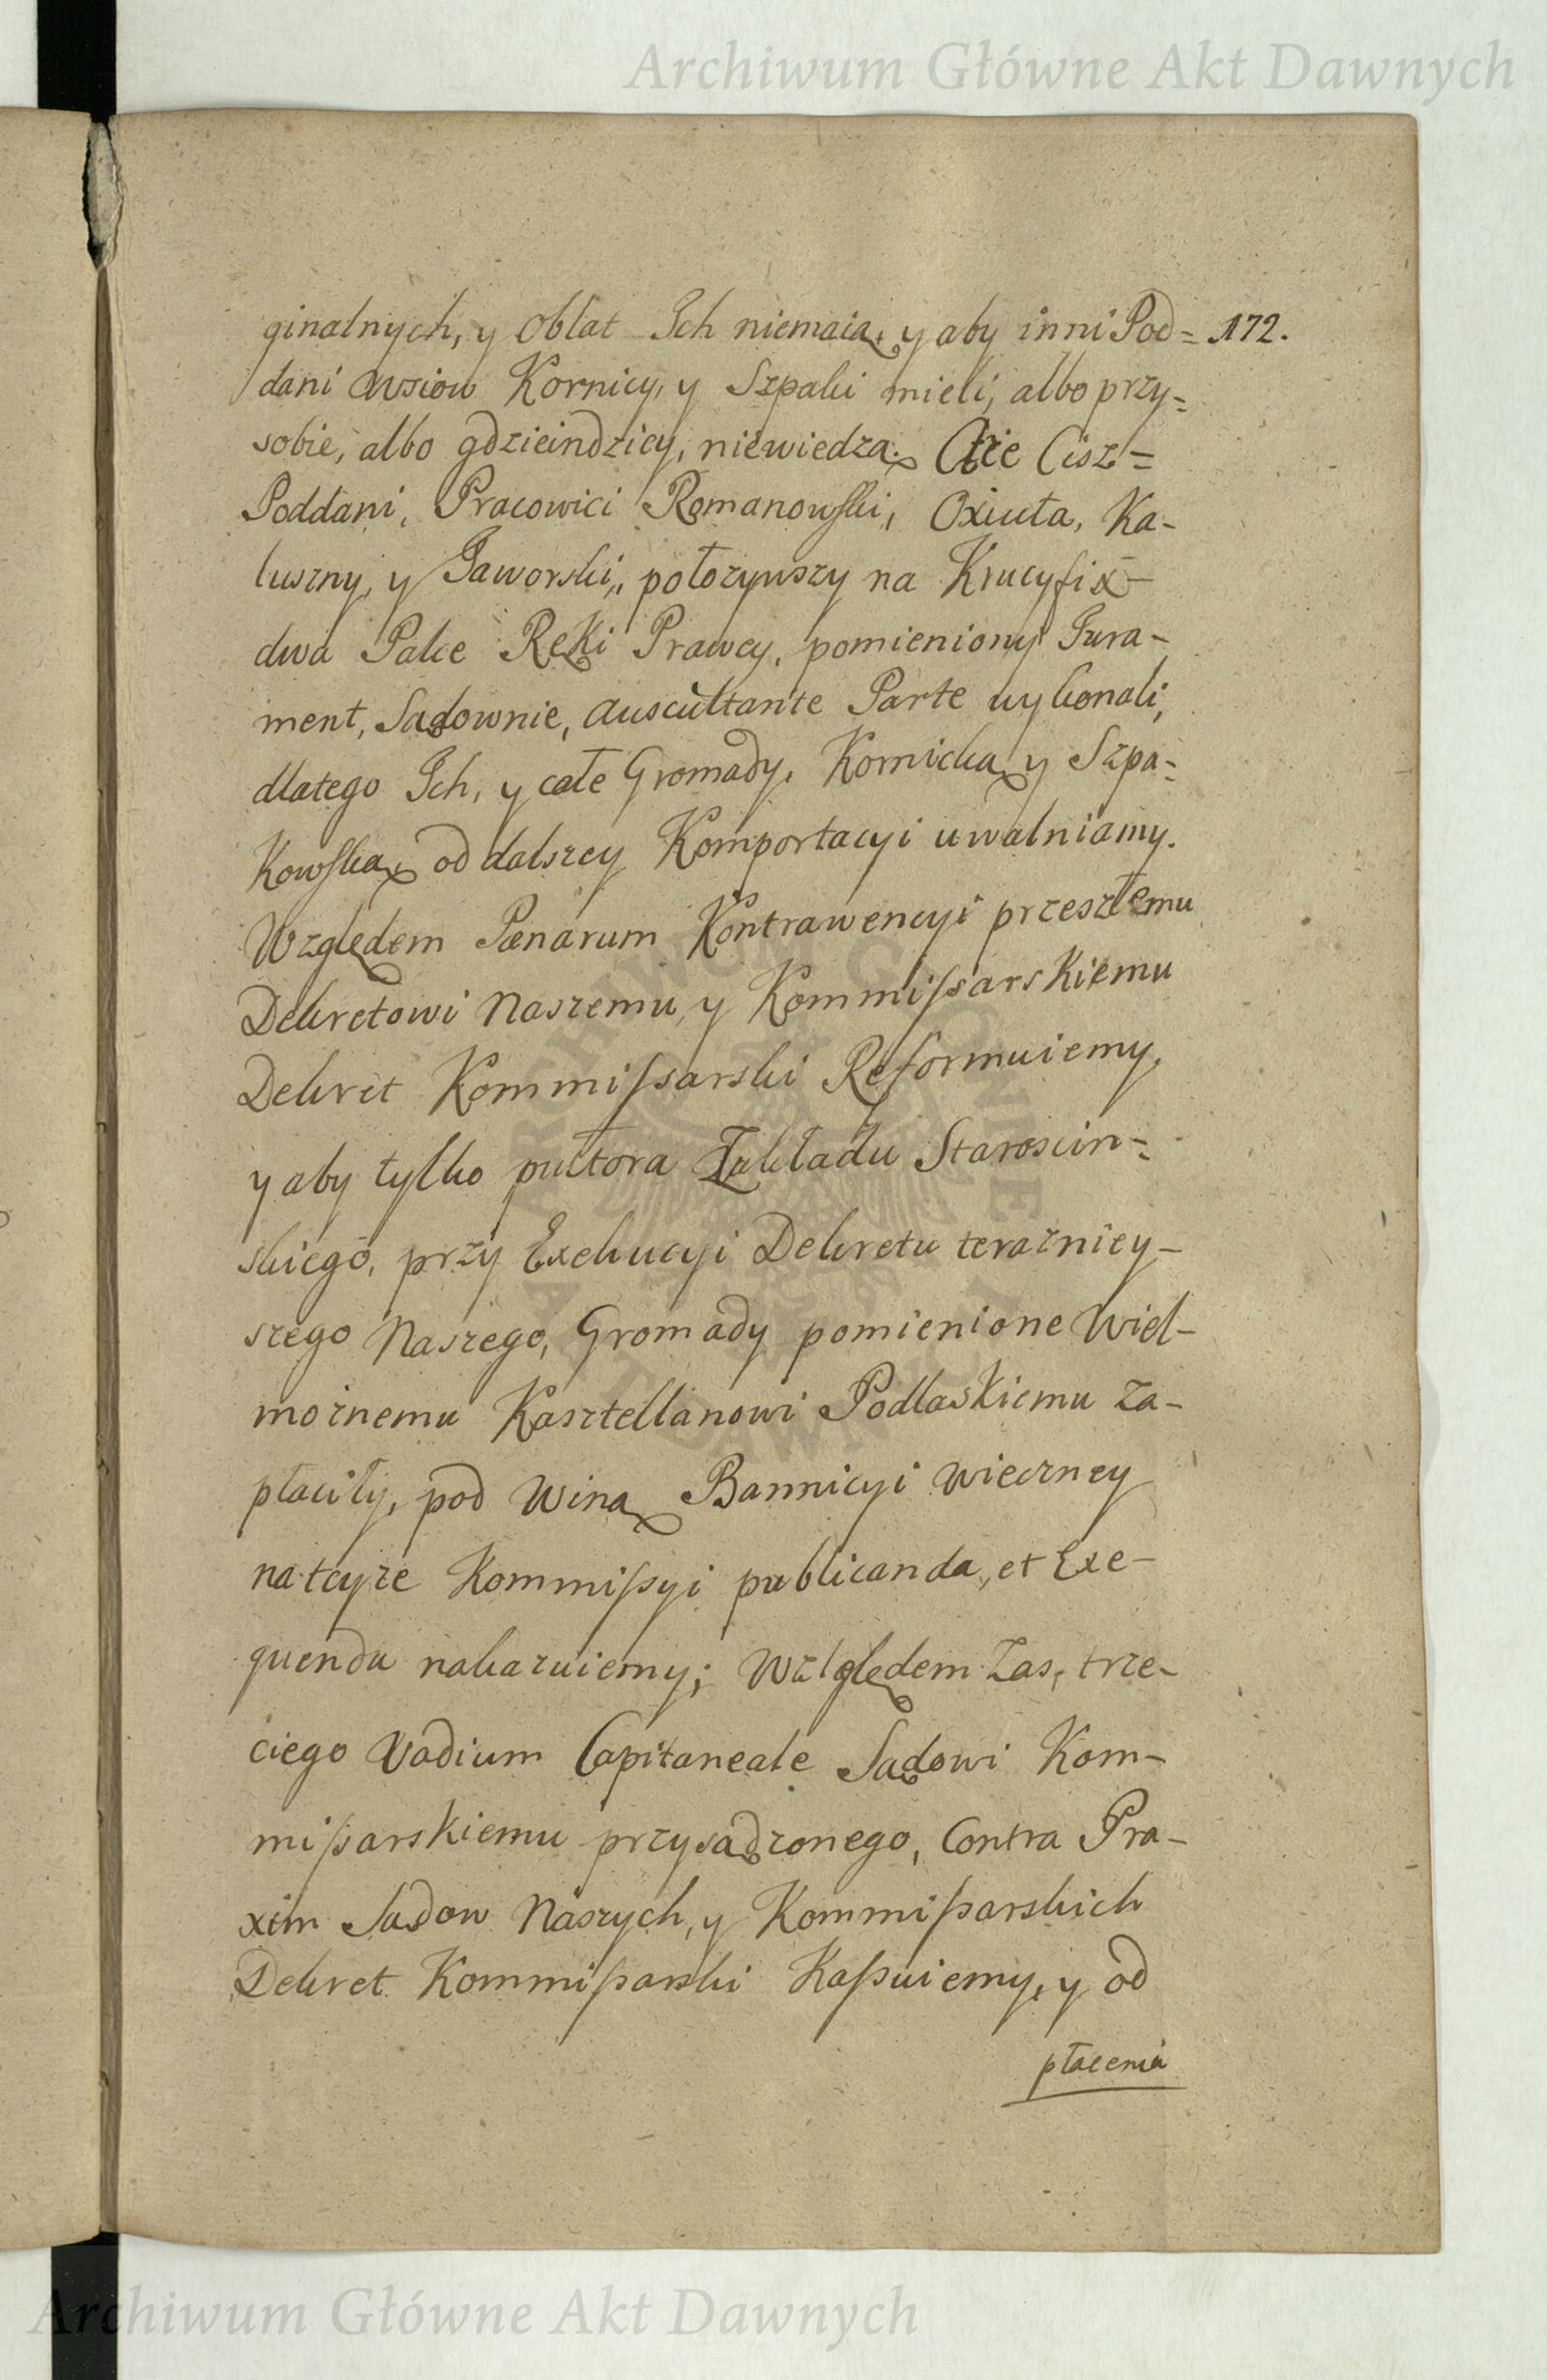 Archiwum Główne Akt Dawnych
ginalnych, y Oblat Ich niemaią, y aby inni Pod= 172.
dani Wsiow Kornicy, y Szpaki mieli, albo przy=
sobie, albo gdzieindziey, niewiedzą. A że Ciż=
Poddani, Pracowici Romanowski, Oxiuta, Ka-
luszny, y Jaworski, położywszy na Krucyfix-
dwa Palce Ręki Prawey, pomieniony Jura-
ment, Sądownie, auscultante Parte wykonali,
dlatego Ich, y całe Gromady, Kornicką y Szpa=
Kowską od dalszey Komportacyi uwalniamy.
Względem Pænarum Kontrawencyi przeszłemu
Dekretowi Naszemu, y Kommissarskiemu
Dekret Kommissarski Reformuiemy,
y aby tylko pułtora Zakładu Starościn=
skiego, przy Exekucyi Dekretu teraźniey-
szego Naszego, Gromady pomienione Wiel-
możnemu Kasztellanowi Podlaskiemu za-
płaciły, pod Winą Bannicyi wieczney
na teyże Kommissyi publicanda, et Exe-
quenda nakazuiemy; Względem Zaś, trze-
ciego Vadium Capitaneale Sądowi Kom-
missarskiemu przysądzonego, Contra Pra-
xim Sądow Naszych, y Kommissarskich
Dekret Kommissarski Kassuiemy, y od
płacenia
Archiwum Główne Akt Dawnych